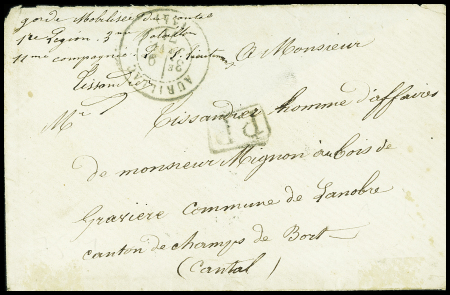 garde Mobilisée du Cantal
1re Légion. 3me Bataillon
11me compagnie. Le S. lieutenant
Tissandier
AURILLAC
A Monsieur
P.P.
Mr Tissandier homme d'affaires
de monsieur Mignon au bois de
Gravière Commune de Lanobre
canton de champs de Bort
(Cantal)